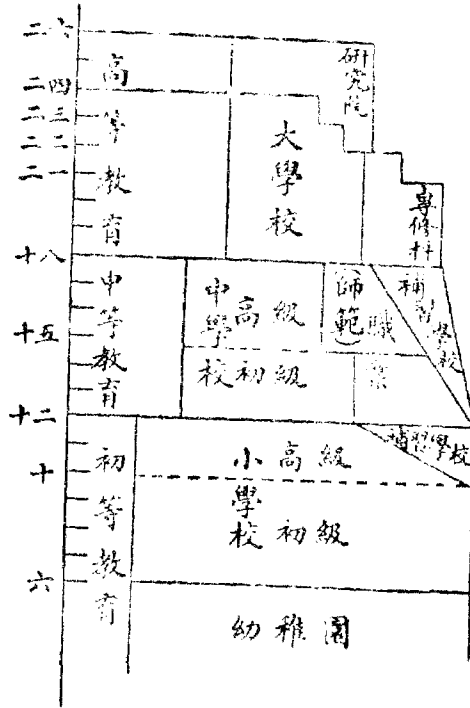 二六
二四
二三
二二
二一
十八
十五
十二
十
六
高等教育
中等教育
初等教育
研究院
大學校
專修科
中學校
高級
初級
(師範)
職業
補習學校
補習學校
小學校
高級
初級
幼稚園